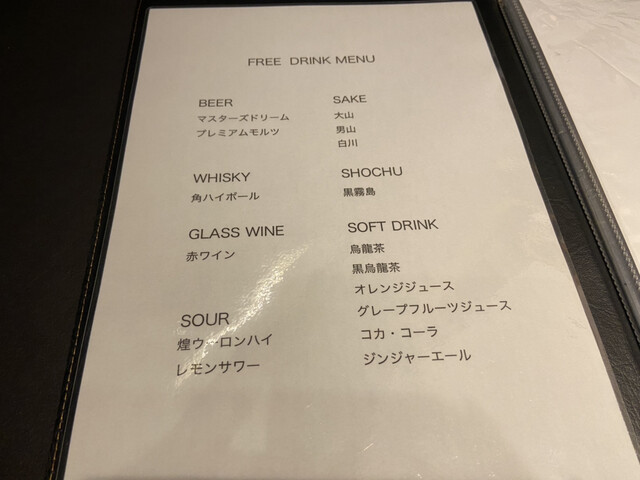 FREE DRINK MENU
BEER
マスターズドリーム
プレミアムモルツ
SAKE
大山
男山
白川
WHISKY
角ハイボール
SHOCHU
黒霧島
GLASS WINE
赤ワイン
SOFT DRINK
烏龍茶
黒烏龍茶
オレンジジュース
グレープフルーツジュース
コカ・コーラ
ジンジャーエール
SOUR
煌ウーロンハイ
レモンサワー